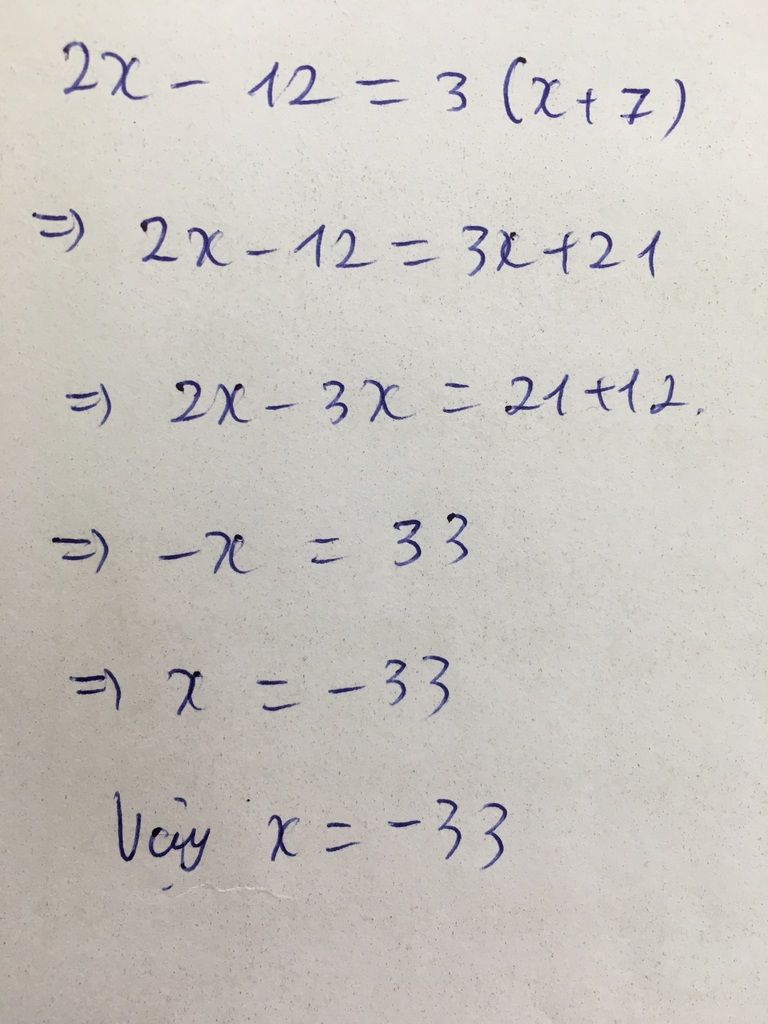 2x - 12 = 3 (x + 7)
=> 2x - 12 = 3x + 21
=> 2x - 3x = 21 + 12.
=> -x = 33
=> x = -33
Vậy x = -33